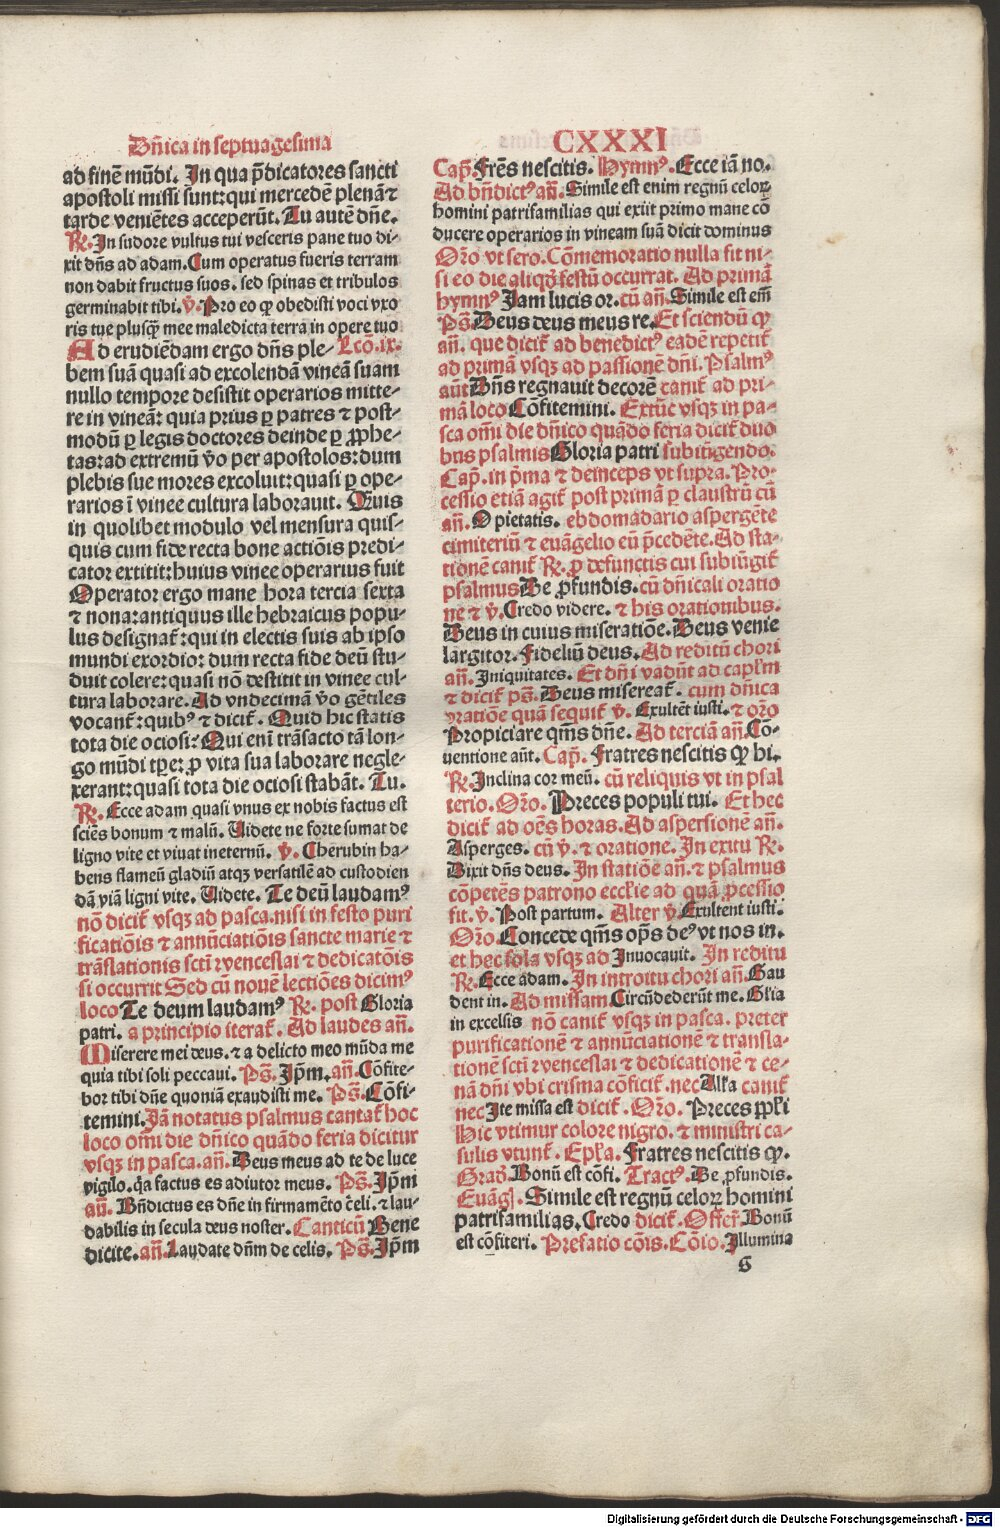 Dn̄ica in septuagesima
CXXXI
ad finē mūdi. In qua p̄dicatores sancti
apostoli missi sunt: qui mercedē plenā ⁊
tarde veniētes acceperūt. Tu autē dn̄e.
R̄. In sudore vultus tui vesceris pane tuo di⸗
xit dn̄s ad adam. Cum operatus fueris terram
non dabit fructus suos. sed spinas et tribulos
germinabit tibi. v̄. Pro eo ꝙ obedisti voci vxo
ris tue plusqꝫ mee maledicta terra in opere tuo
Ad erudiēdam ergo dn̄s ple⸗ Lcō. ix.
bem suā quasi ad excolendā vineā suam
nullo tempore desistit operarios mitte⸗
re in vineā: quia prius ꝑ patres ⁊ post⸗
modū ꝑ legis doctores deinde ꝑ ꝓphe⸗
tas: ad extremū v̄o per apostolos: dum
plebis sue mores excoluit: quasi ꝑ ope⸗
rarios ī vinee cultura laborauit. Quis
in quolibet modulo vel mensura quis⸗
quis cum fide recta bone actiōis predi⸗
cator extitit: huius vinee operarius fuit
Operator ergo mane hora tercia sexta
⁊ nona: antiquus ille hebraicus popu⸗
lus designat̄: qui in electis suis ab ipso
mundi exordio: dum recta fide deū stu⸗
duit colere: quasi nō destitit in vinee cul⸗
tura laborare. Ad vndecimā v̄o gētiles
vocant̄: quibꝰ ⁊ dicit̄. Quid hic statis
tota die ociosi: Qui enī trāsacto tā lon⸗
go mūdi tꝑe: ꝓ vita sua laborare negle⸗
xerant: quasi tota die ociosi stabāt. Tu.
R̄. Ecce adam quasi vnus ex nobis factus est
sciēs bonum ⁊ malū. Videte ne forte sumat de
ligno vite et viuat ineternū. v̄. Cherubin ha⸗
bens flameū gladiū atqꝫ versatilē ad custodien
dā viā ligni vite. Videte. Te deū laudamꝰ
nō dicit̄ vsqꝫ ad pasca. nisi in festo puri
ficatiōis ⁊ annūciatiōis sancte marie ⁊
trāslationis sctī wenceslai ⁊ dedicatōis
si occurrit Sed cū nouē lectiōes dicimꝰ
loco Te deum laudamꝰ R̄. post Gloria
patri. a principio iterat̄. Ad laudes an̄.
Miserere mei deus. ⁊ a delicto meo mūda me
quia tibi soli peccaui. Ps̄. Ip̄m. an̄. Cōfite⸗
bor tibi dn̄e quoniā exaudisti me. Ps̄. Cōfi⸗
temini. Iā notatus psalmus cantat̄ hoc
loco om̄i die dn̄ico quādo feria dicitur
vsqꝫ in pasca. an̄. Deus meus ad te de luce
vigilo. q̄a factus es adiutor meus. Ps̄. Ip̄m
an̄. Bn̄dictus es dn̄e in firmamēto celi. ⁊ lau⸗
dabilis in secula deus noster. Canticū Bene
dicite. an̄. Laudate dn̄m de celis. Ps̄. Ip̄m
Cap̄. Fr̄es nescitis. Hymnꝰ. Ecce iā no.
Ad bn̄dictꝰ an̄. Simile est enim regnū celoꝝ
homini patrifamilias qui exiit primo mane cō
ducere operarios in vineam suā dicit dominus
Or̄o vt sero. Cōmemoratio nulla fit ni⸗
si eo die aliqḋ festū occurrat. Ad primā
hymnꝰ Iam lucis or. cū an̄. Simile est em̄
Ps̄. Deus deus meus re. Et sciendū ꝙ
an̄. que dicit̄ ad benedictꝰ eadē repetit̄
ad primā vsqꝫ ad passionē dn̄i. Psalmꝰ
aūt Dn̄s regnauit decorē canit̄ ad pri⸗
mā loco Cōfitemini. Extūc vsqꝫ in pa⸗
sca om̄i die dn̄ico quādo feria dicit̄ duo
bus psalmis Gloria patri subiūgendo.
Cap̄. in p̄ma ⁊ deinceps vt supra. Pro⸗
cessio etiā agit̄ post primā ꝑ claustrū cū
an̄. O pietatis. ebdomadario aspergēte
cimiteriū ⁊ euāgelio eū p̄cedēte. Ad sta⸗
tionē canit̄ R̄. ꝓ defunctis cui subiūgit̄
psalmus De ꝓfundis. cū dn̄icali oratio
ne ⁊ v̄. Credo videre. ⁊ his orationibus.
Deus in cuius miseratiōe. Deus venie
largitor. Fideliū deus. Ad reditū chori
an̄. Iniquitates. Et dn̄i vadūt ad capl̄m
⁊ dicit̄ ps̄. Deus misereat̄. cum dn̄ica
oratiōe quā sequit̄ v̄. Exultēt iusti. ⁊ or̄o
Propiciare qm̄s dn̄e. Ad terciā an̄. Cō⸗
uentione aūt. Cap̄. Fratres nescitis ꝙ hi.
R̄. Inclina cor meū. cū reliquis vt in psal
terio. Or̄o. Preces populi tui. Et hec
dicit̄ ad oēs horas. Ad aspersionē an̄.
Asperges. cū v̄. ⁊ oratione. In exitu R̄.
Dixit dn̄s deus. In statiōe an̄. ⁊ psalmus
cōpetēs patrono eccl̄ie ad quā ꝓcessio
fit. v̄. Post partum. Alter v̄. Exultent iusti.
Or̄o. Concede qm̄s op̄s deꝰ vt nos in.
et hec sola vsqꝫ ad Inuocauit. In reditu
R̄. Ecce adam. In introitu chori an̄. Gau
dent in. Ad missam Circūdederūt me. Gl̄ia
in excelsis nō canit̄ vsqꝫ in pasca. preter
purificationē ⁊ annūciationē ⁊ transla⸗
tionē sctī wenceslai ⁊ dedicationē ⁊ ce⸗
nā dn̄i vbi crisma cōficit̄. nec All̄a canit̄
nec Ite missa est dicit̄. Or̄o. Preces ppl̄i
Hic vtimur colore nigro. ⁊ ministri ca⸗
sulis vtunt̄. Epl̄a. Fratres nescitis ꝙ.
Grad̄. Bonū est cōfi. Tractꝰ. De ꝓfundis.
Euāḡl. Simile est regnū celoꝝ homini
patrifamilias. Credo dicit̄. Offer̄. Bonū
est cōfiteri. Prefatio cōis. Cōio. Illumina
S
Digitalisierung gefördert durch die Deutsche Forschungsgemeinschaft - DFG